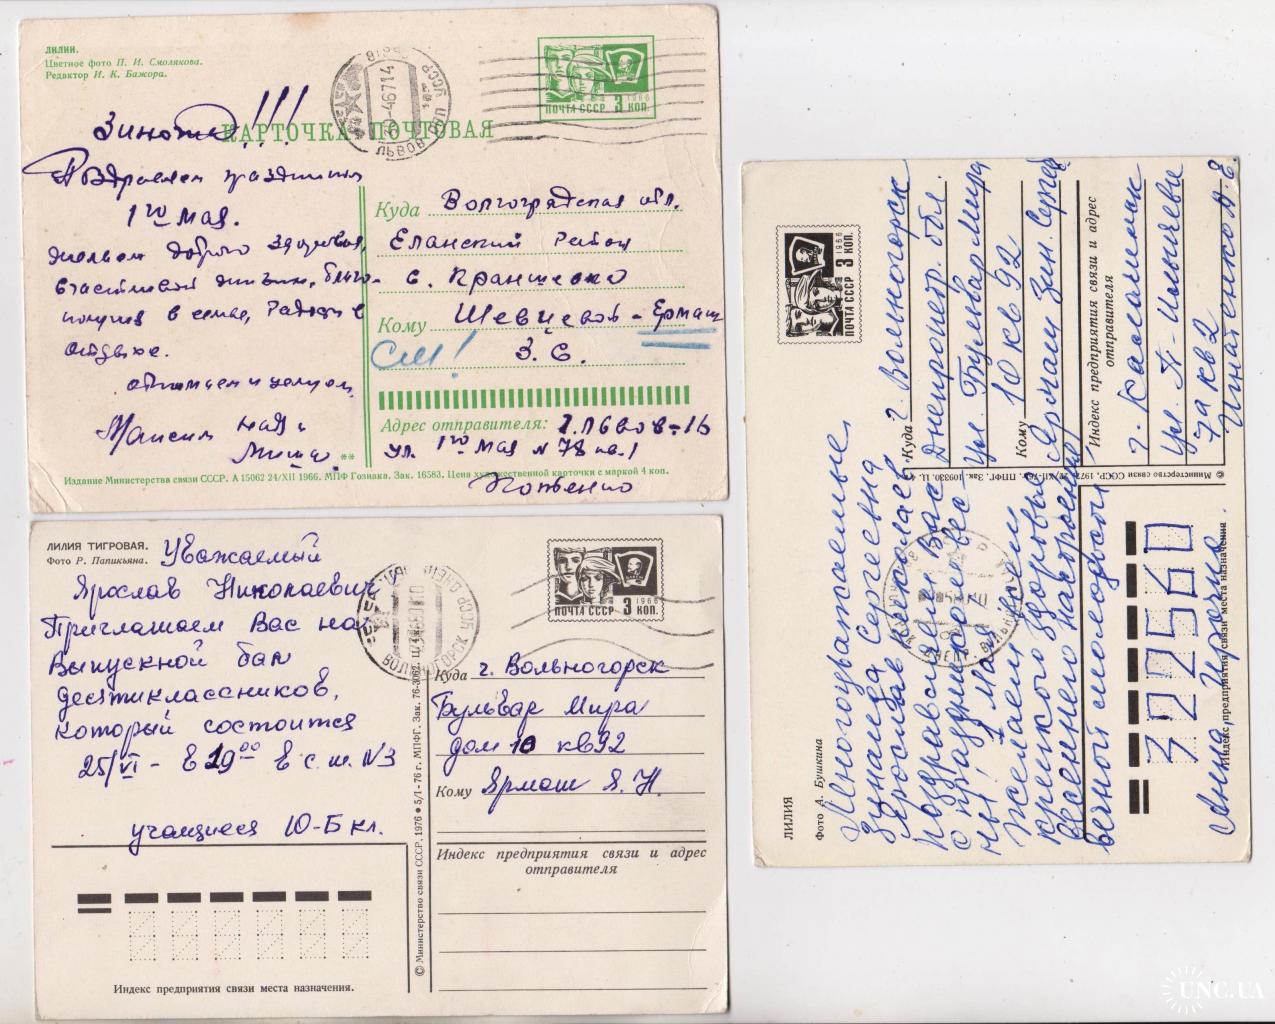 ЛИЛИИ.
Цветное фото П. И. Смолякова.
Редактор И. К. Бажора.
ПОЧТА СССР 3 КОП.
1966
КАРТОЧКА ПОЧТОВАЯ
ЛЬВОВ
Поздравляем с праздником
1го мая.
желаем доброго здоровья,
счастливой жизни, благо-
получия в семье, радости в
отдыхе.
обнимаем и целуем
Максим Надя
Миша
Куда Волгоградская обл.
Еланский район
с.
Кому Шевцовой - Ермаш
З. С.
См!
Адрес отправителя: г. Львов-16
ул. 1го мая № 78 кв. 1
**
Издание Министерства связи СССР. А 15062 24/XII 1966. МПФ Гознака. Зак. 16583. Цена художественной карточки с маркой 4 коп.
ЛИЛИЯ ТИГРОВАЯ.
Фото Р. Папикьяна.
Уважаемый
Ярослав Николаевич
Приглашаем Вас на
Выпускной бал
десятиклассников,
который состоится
25/VI - в 19⁰⁰ в с. ш. N3
учащиеся 10-Б кл.
ПОЧТА СССР 3 КОП.
1966
Куда г. Вольногорск
Бульвар Мира
дом 10 кв 92
Кому Ярмаш Я. Н.
Индекс предприятия связи и адрес
отправителя
© Министерство связи СССР. 1976 ● 5/I-76 г. МПФГ. Зак. 76-3062. Ц.
Индекс предприятия связи места назначения.
ЛИЛИЯ
Фото А. Бушкина
Многоуважаемые
Зинаида Сергеевна
Ярослав Николаев.
поздравляем Вас
с праздником вес
ны 1 Мая
Желаем Вам
крепкого здоровья
весеннего настроения
вечной молодости
Анна, Ирочка.
ПОЧТА СССР 3 КОП.
1966
Куда г. Вольногорск
Днепропетр. обл.
ул. Бульвар Мира
10 кв 92
Кому Ярмаш Зин. Сергеев
Индекс предприятия связи и адрес
отправителя
ул.
7а кв 2
Игнатенко А. Е.
© Министерство связи СССР, 197
ППФГ. Зак. 109330. Ц. 4 к.
Индекс предприятия связи места назначения
322560
UNC.UA